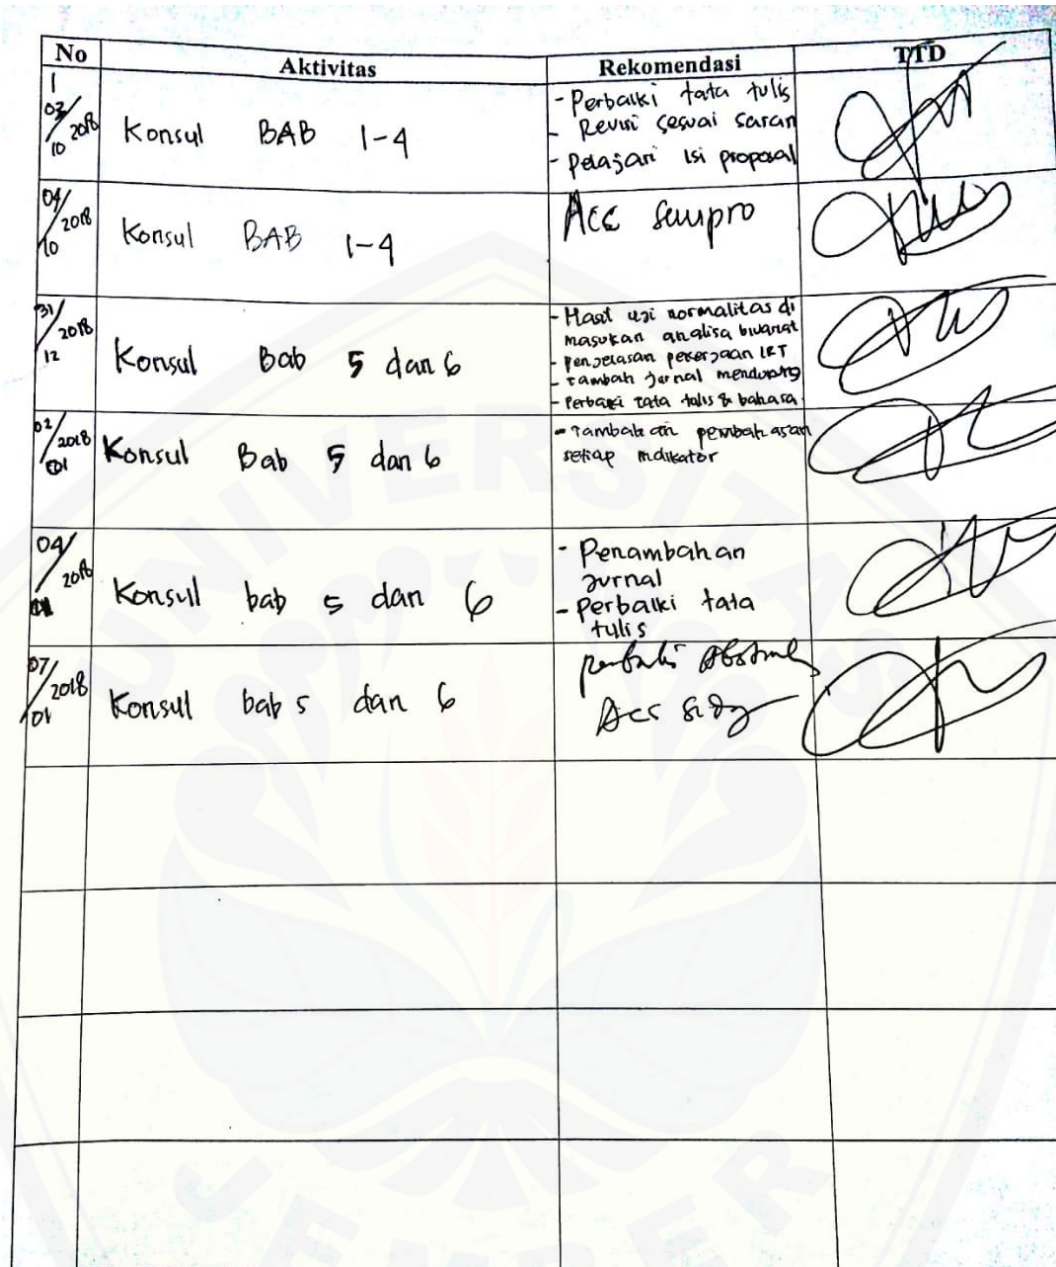 No Aktivitas Rekomendasi TTD
1
03/10 2018 Konsul BAB 1-4
- Perbaiki tata tulis
- Revisi sesuai saran
- Pelajari isi proposal
04/10 2018 Konsul BAB 1-4
Acc sempro
31/12 2018 Konsul Bab 5 dan 6
- Hasil uji normalitas di
masukan analisa bivariat
- Penjelasan pekerjaan IRT
- Tambah jurnal mendukung
- Perbaiki tata tulis & bahasa
02/01 2018 Konsul Bab 5 dan 6
- Tambahan pembahasan
setiap indikator
04/01 2018 Konsul bab 5 dan 6
- Penambahan
jurnal
- Perbaiki tata
tulis
07/01 2018 Konsul bab 5 dan 6
Acc
UNIVERSITAS
JEMBER